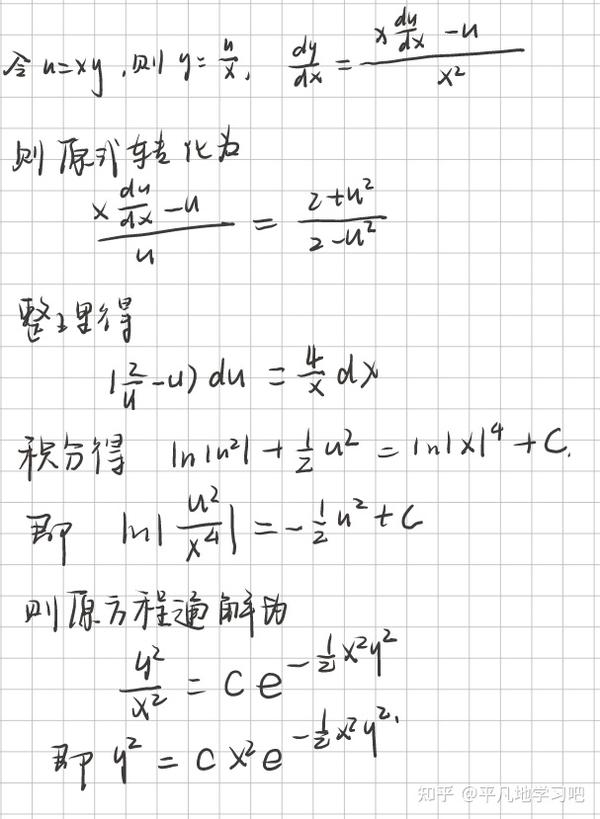 令 u=xy, 则 y=\frac{u}{x}, \frac{dy}{dx} = \frac{x\frac{du}{dx}-u}{x^2}
则原式转化为
\frac{x\frac{du}{dx}-u}{u} = \frac{2+u^2}{2-u^2}
整理得
(\frac{2}{u}-u)du = \frac{4}{x}dx
积分得 ln|u^2| + \frac{1}{2}u^2 = ln|x|^4 + C.
即 ln|\frac{u^2}{x^4}| = -\frac{1}{2}u^2 + C
则原方程通解为
\frac{y^2}{x^2} = C e^{-\frac{1}{2}x^2y^2}
即 y^2 = C x^2 e^{-\frac{1}{2}x^2y^2}.
知乎 @平凡地学习吧